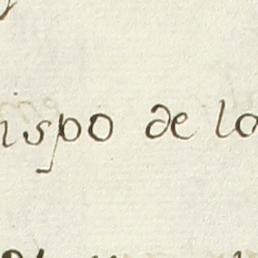 ispo de lo